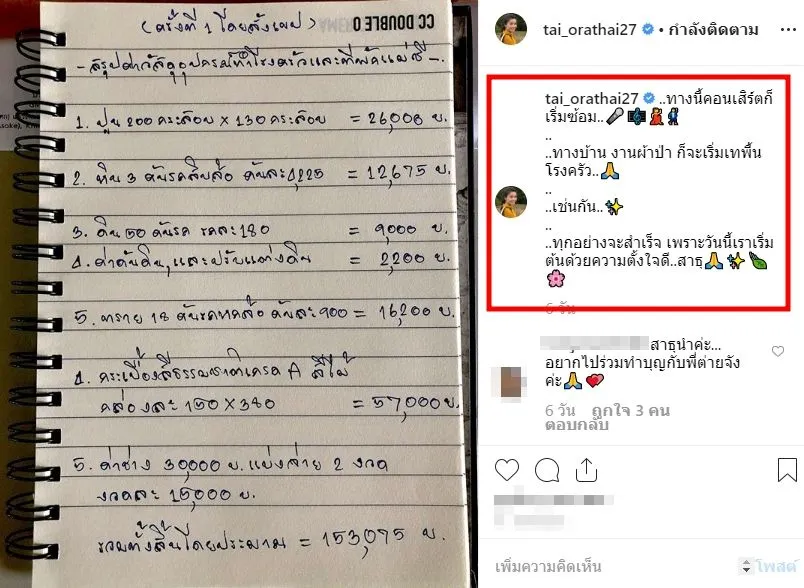 (ครั้งที่ 1 โดยสังเขป)
CC DOUBLE O
- สรุปค่าวัสดุอุปกรณ์ทำโรงครัวและที่พักแม่ชี -
1. ปูน 200 กระสอบ x 130 กระสอบ = 26,000 บ.
2. หิน 3 คันรถสิบล้อ คันละ 4,225 = 12,675 บ.
3. ดิน 50 คันรถ รถละ 180 = 9,000 บ.
4. ค่าดันดิน, และปรับแต่งดิน = 2,200 บ.
5. ทราย 18 คันรถหกล้อ คันละ 900 = 16,200 บ.
4. กระเบื้องสีธรรมชาติเกรด A สีไม้
กล่องละ 150 x 380 = 57,000 บ.
5. ค่าช่าง 30,000 บ. แบ่งจ่าย 2 งวด
งวดละ 15,000 บ.
รวมทั้งสิ้นโดยประมาณ = 153,075 บ.
tai_orathai27 • กำลังติดตาม
tai_orathai27 ..ทางนี้คอนเสิร์ตก็
เริ่มซ้อม..🎤🎼💃🕺
..
..ทางบ้าน งานผ้าป่า ก็จะเริ่มเทพื้น
โรงครัว..🙏
..
..เช่นกัน..✨
..
..ทุกอย่างจะสำเร็จ เพราะวันนี้เราเริ่ม
ต้นด้วยความตั้งใจดี..สาธุ🙏✨🍃
🌸
6 วัน
สาธุนำค่ะ...
อยากไปร่วมทำบุญกับพี่ต่ายจัง
ค่ะ🙏💕
6 วัน ถูกใจ 3 คน
ตอบกลับ
เพิ่มความคิดเห็น
โพสต์